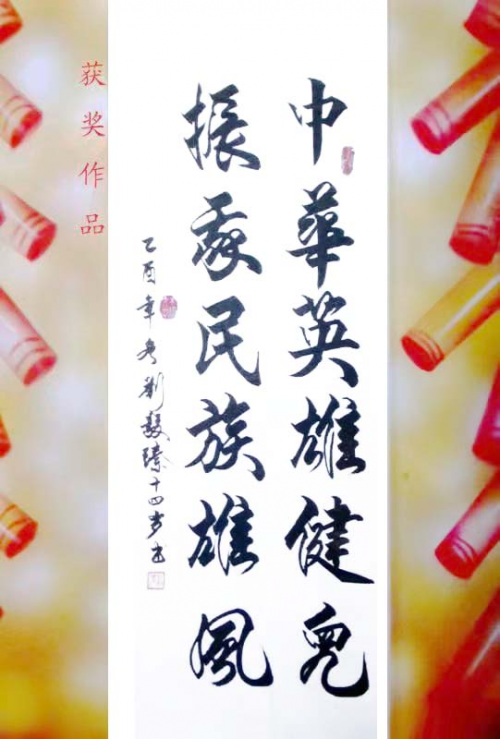 中華英雄健兒
振我民族雄風
乙酉年冬劉毅臻十四岁书
获奖作品